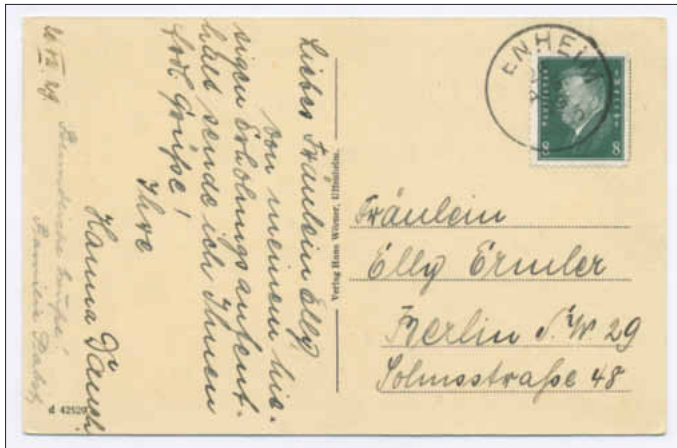 20. VII. 29.
Liebes Fräulein Elly,
von meinem hie-
sigen Erholungsaufent-
halt sende ich Ihnen
frdl. Grüße!
Ihre
Hanna
Grüße!
Familie
d 42529
Verlag Hans Wiesner, Uffenheim.
ENHEIM
8 8
Fräulein
Elly Ermler
Berlin S.W. 29
Solmsstraße 48